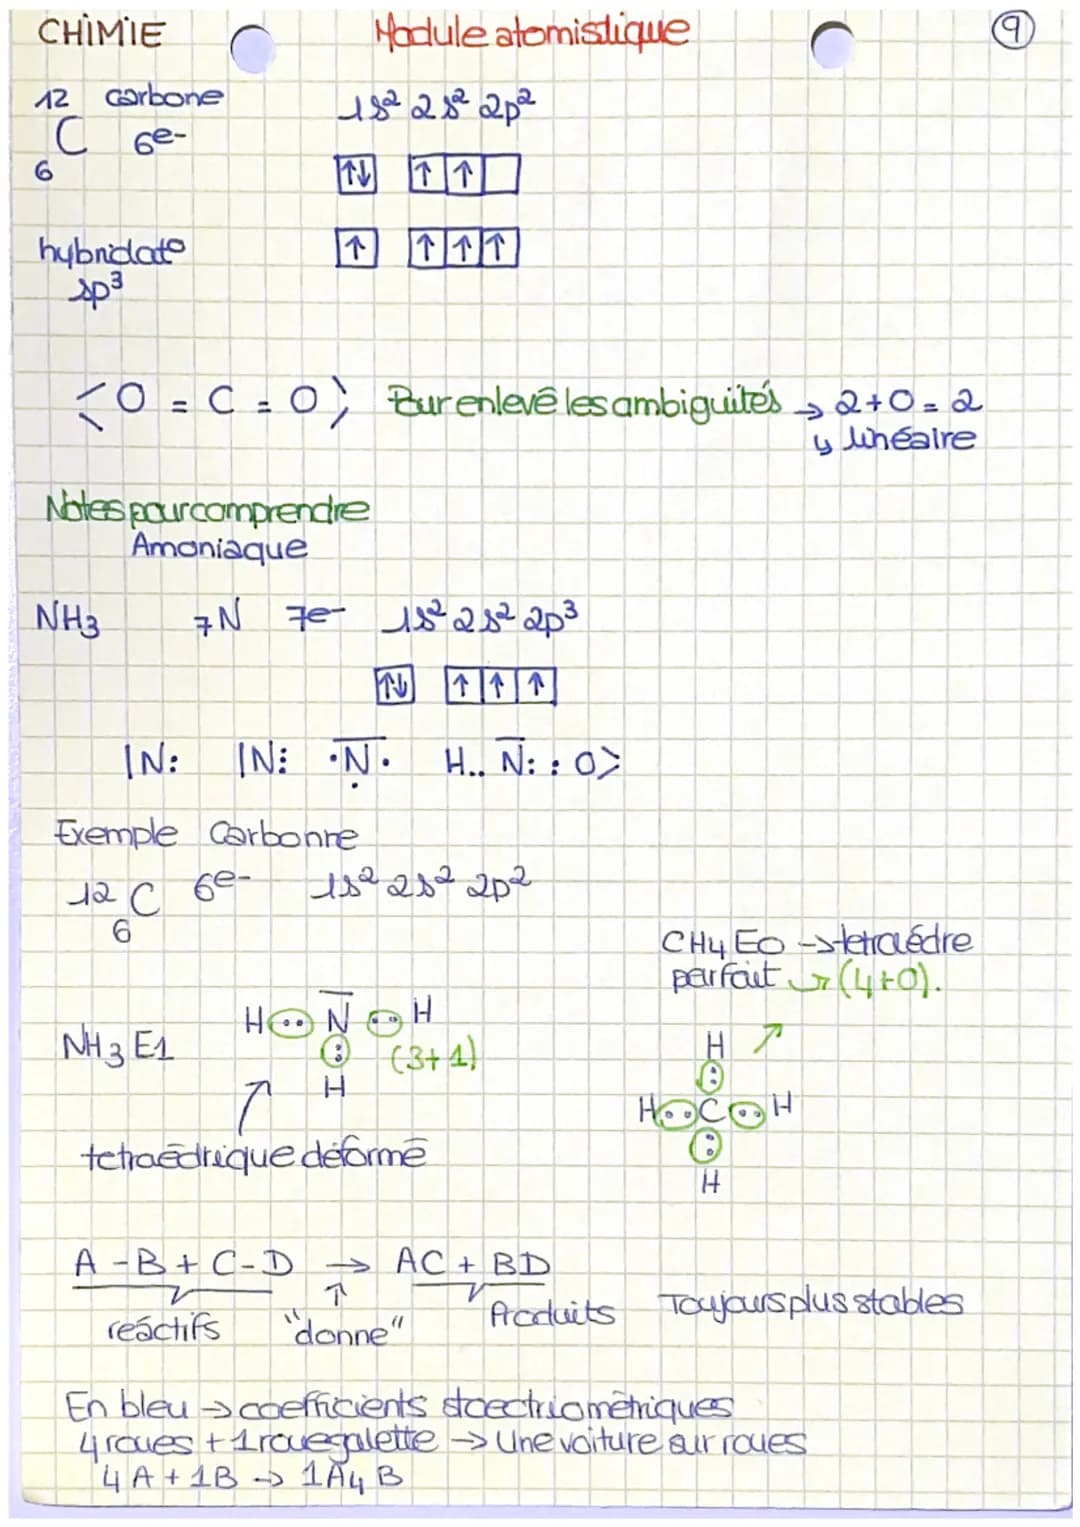 CHIMIE Module atomistique 9
12 carbone 1s² 2s² 2p²
C 6e-
6
↑↓ ↑ ↑
hybridato ↑ ↑ ↑ ↑
sp³
<O = C = O> Pour enlevé les ambiguités → 2+0=2
↳ linéaire
Notes pour comprendre
Amoniaque
NH3 7N 7e- 1s² 2s² 2p³
↑↓ ↑ ↑ ↑
|N: |N⋮ ·N̅· H.. N̅: : O>
Exemple Carbonne
12 C 6e- 1s² 2s² 2p²
6
CH4 E0 → tetraédre
parfait ↗ (4+0).
H·· N̅ ·· H
NH3 E1 : (3+1)
H
H
:
H··C··H
:
H
tetraédrique déformé
A-B + C-D → AC + BD
réactifs "donne" Produits Toujours plus stables
En bleu → coefficients stoectriométriques
4 roues + 1 rouegalette → Une voiture sur roues
4A + 1B → 1A4B